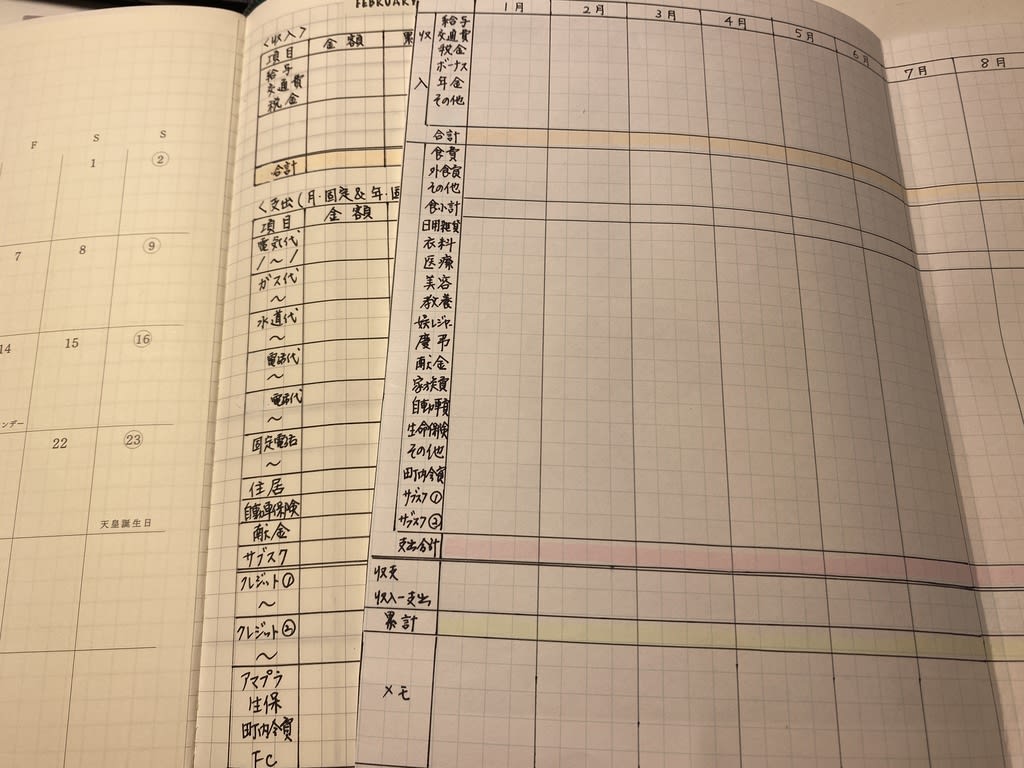 F S S
1 2
7 8 9
14 15 16
ンデー
22 23
天皇誕生日
FEBRUARY
〈収入〉
項目 金額 累
給与
交通費
税金
合計
〈支出(月・固定&年・固
項目 金額
電気代
/〜/
ガス代
〜
水道代
〜
電話代
〜
電話代
〜
固定電話
〜
住居
自動車保険
献金
サブスク
クレジット①
〜
クレジット②
〜
アマプラ
生保
町内会費
FC
1月 2月 3月 4月 5月 6月 7月 8月
収入
給与
交通費
税金
ボーナス
年金
その他
合計
食費
外食費
その他
食小計
日用雑貨
衣料
医療
美容
教養
娯レジャー
慶弔
献金
家族費
自動車費
生命保険
その他
町内会費
サブスク①
サブスク②
支出合計
収支
収入ー支出
累計
メモ